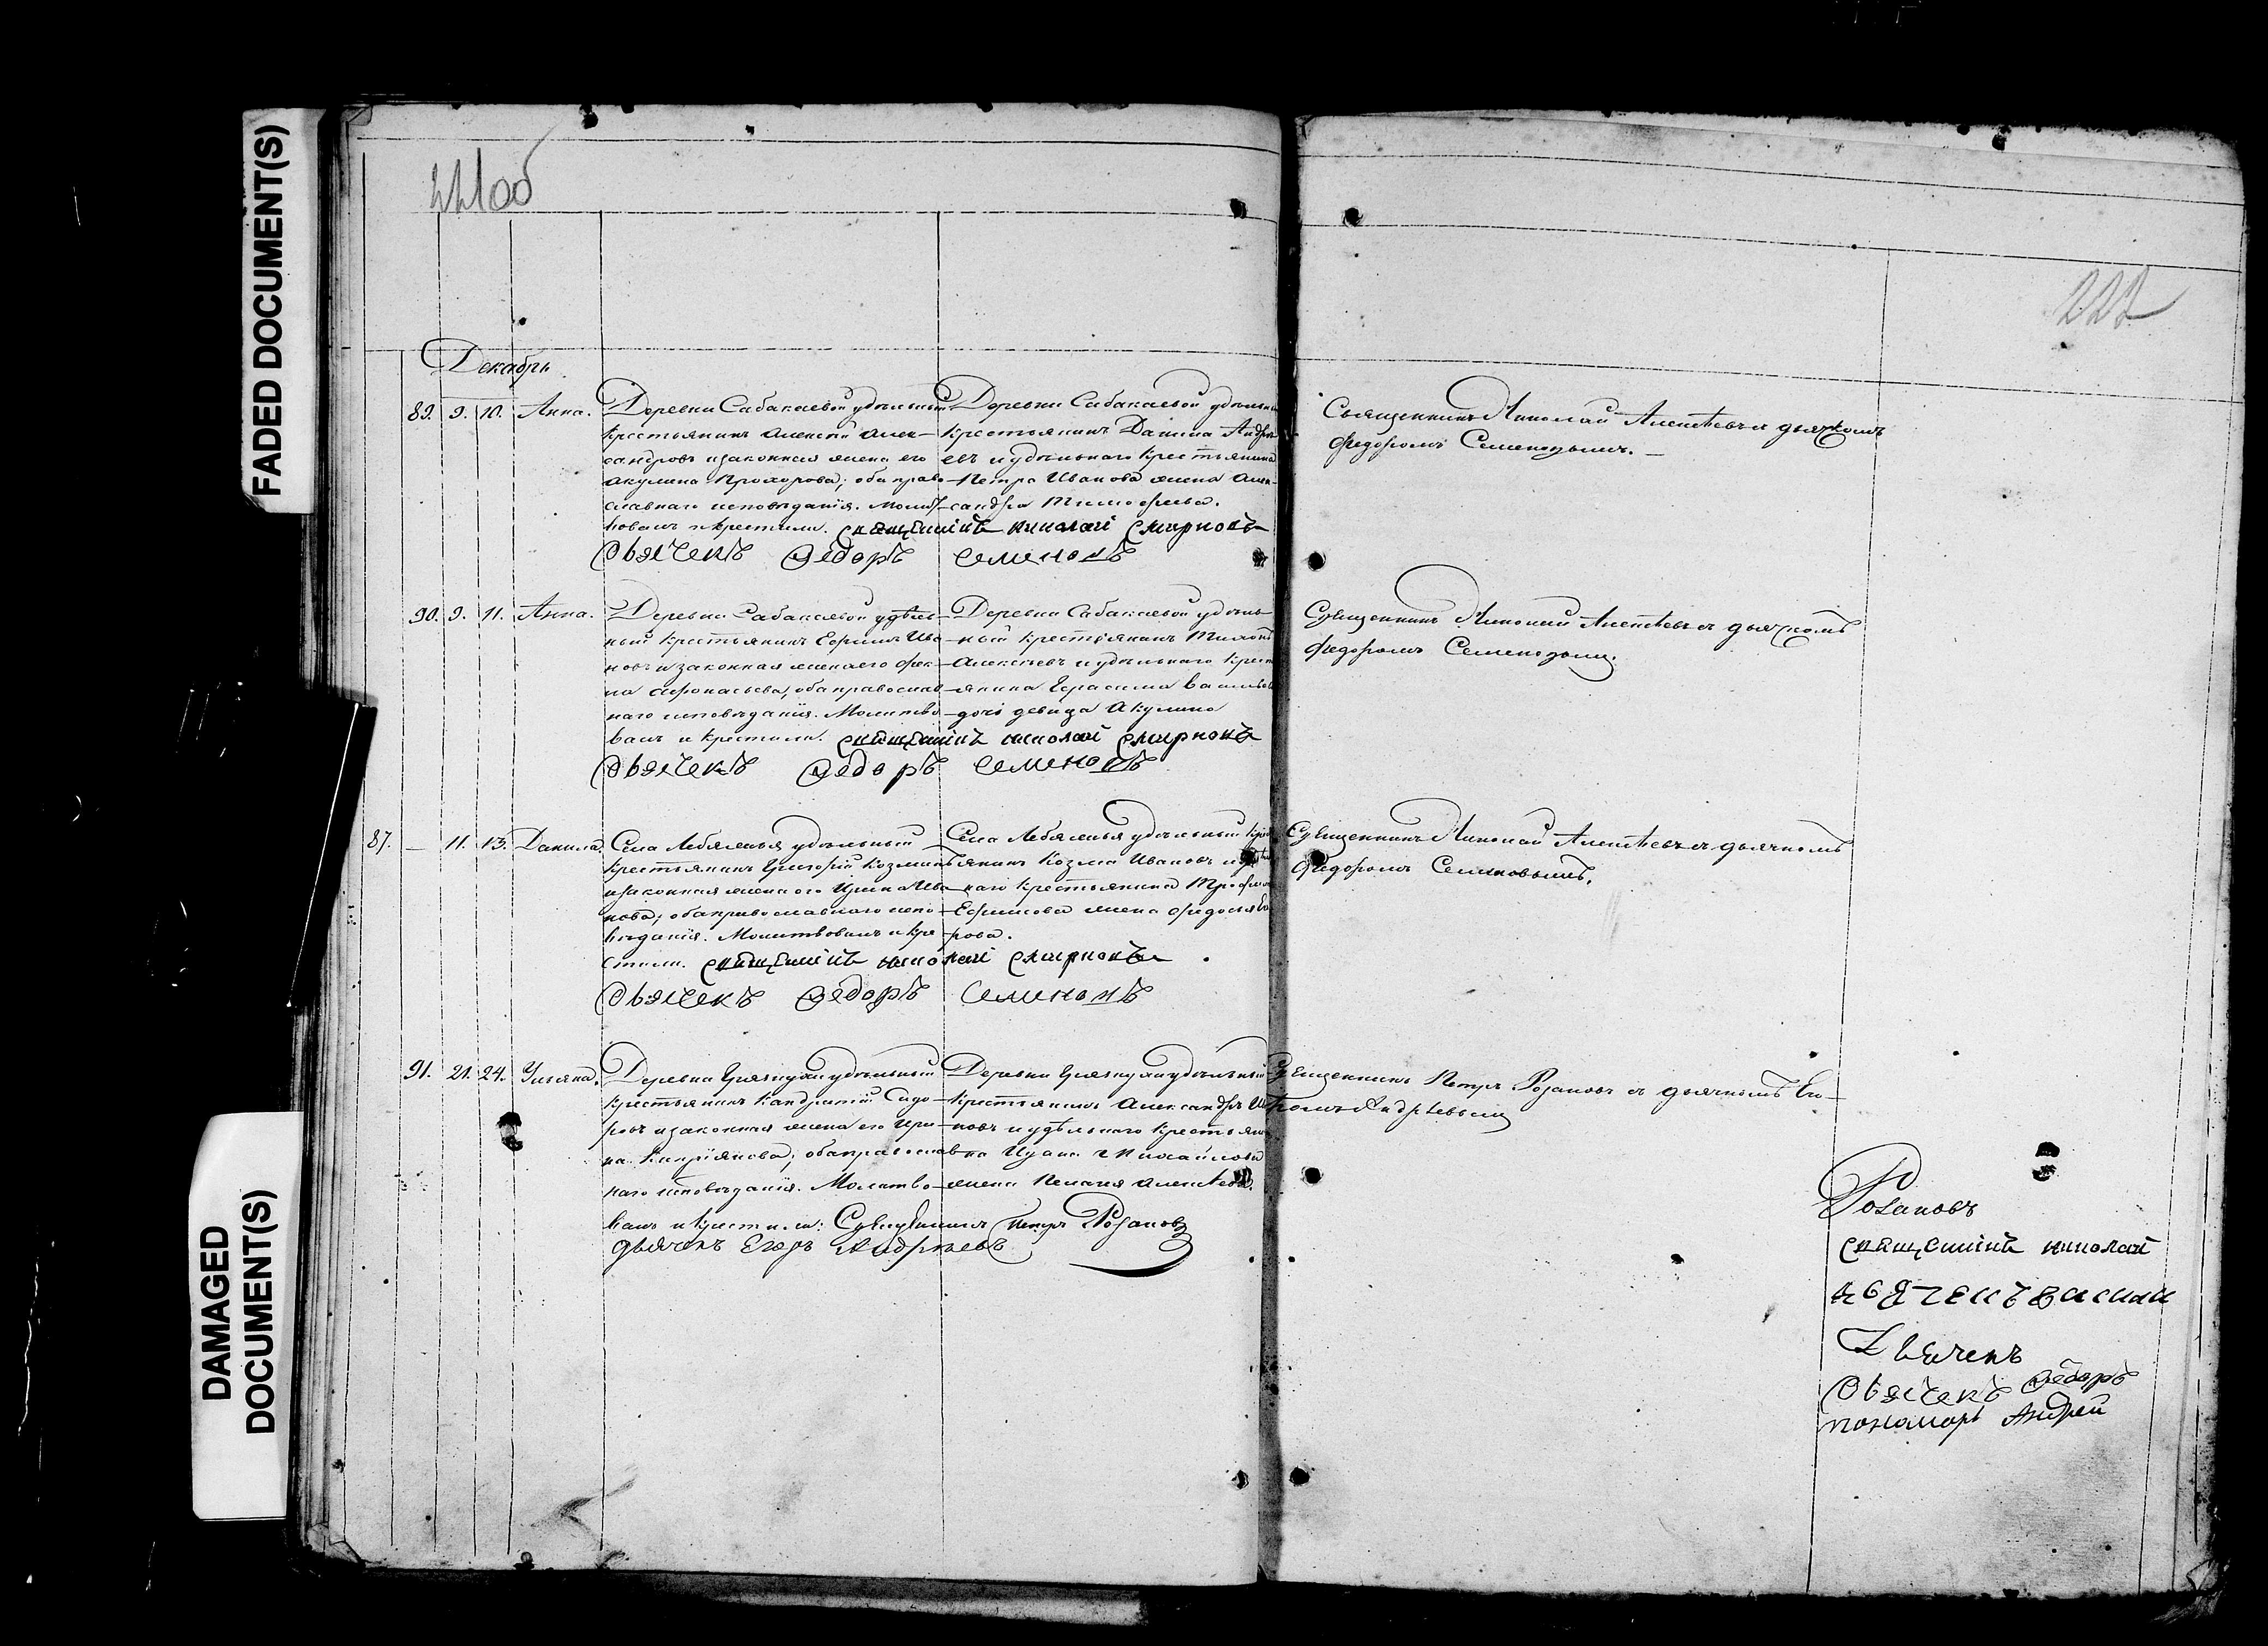 FADED DOCUMENT(S)
DAMAGED
DOCUMENT(S)
221 об
222
Декабрь
89. 9. 10. Анна.
Деревни Сабакаевой удѣльный
крестьянинъ Алексѣй Алек-
сандровъ и законная жена его
Акулина Прохорова; оба право-
славнаго исповѣданія. Молитв-
вовалъ и крестили. Священникъ Николай Смирновъ
Дьячекъ Федоръ Семеновъ
Деревни Сабакаевой удѣльный
крестьянинъ Данила Андре-
евъ и удѣльнаго крестьянина
Петра Иванова жена Алек-
сандра Тимофеева.
Священникъ Николай Алексѣевъ съ дьячкомъ
Федоромъ Семеновымъ.
90. 9. 11. Анна.
Деревни Сабакаевой удѣль-
ный крестьянинъ Ефимъ Ива-
новъ и законная жена его Фек-
ла Афонасьева, оба православ-
наго исповѣданія. Молитво-
валъ и крестили. Священникъ Николай Смирновъ
Дьячекъ Федоръ Семеновъ
Деревни Сабакаевой удѣль-
ный крестьянинъ
Алексѣевъ и удѣльнаго крест
янина Герасима Васильев
дочь девица Акулина
Священникъ Николай Алексѣевъ съ дьячкомъ
Федоромъ Семеновым
87. — 11. 13. Данила.
Села Лебяжья удѣльный
крестьянинъ Григорій Козминъ
и законная жена его Ирина Ива-
нова; оба православнаго испо-
вѣданія. Молитвовалъ и кре-
стили. Священникъ Николай Смирновъ
Дьячекъ Федоръ Семеновъ
Села Лебяжья удѣльный крес
тьянинъ Козма Ивановъ и удѣль
наго крестьянина Трофима
Ефимова жена Федосья
рова.
Священникъ Николай Алексѣевъ съ дьячкомъ
Федоромъ Семеновымъ.
91. 21. 24. Ульяна.
Деревни Грязнухи удѣльный
крестьянинъ Кондратій Сидо-
ровъ и законная жена его Ири-
на Кипріянова; оба православ-
наго исповѣданія. Молитво-
валъ и крестили: Священникъ Петръ Розановъ
дьячекъ Егоръ Андреевъ
Деревни Грязнухи удѣльный
крестьянинъ Александръ Ива
новъ и удѣльнаго крестьяни
на Ивана Михайлова
жена Пелагея Алексѣева.
Священникъ Петръ Розановъ съ дьячкомъ Его-
ромъ Андреевым
Розановъ
Священникъ Николай
Дьячекъ Василій
Дьячекъ
Дьячекъ Федоръ
пономарь Андрей